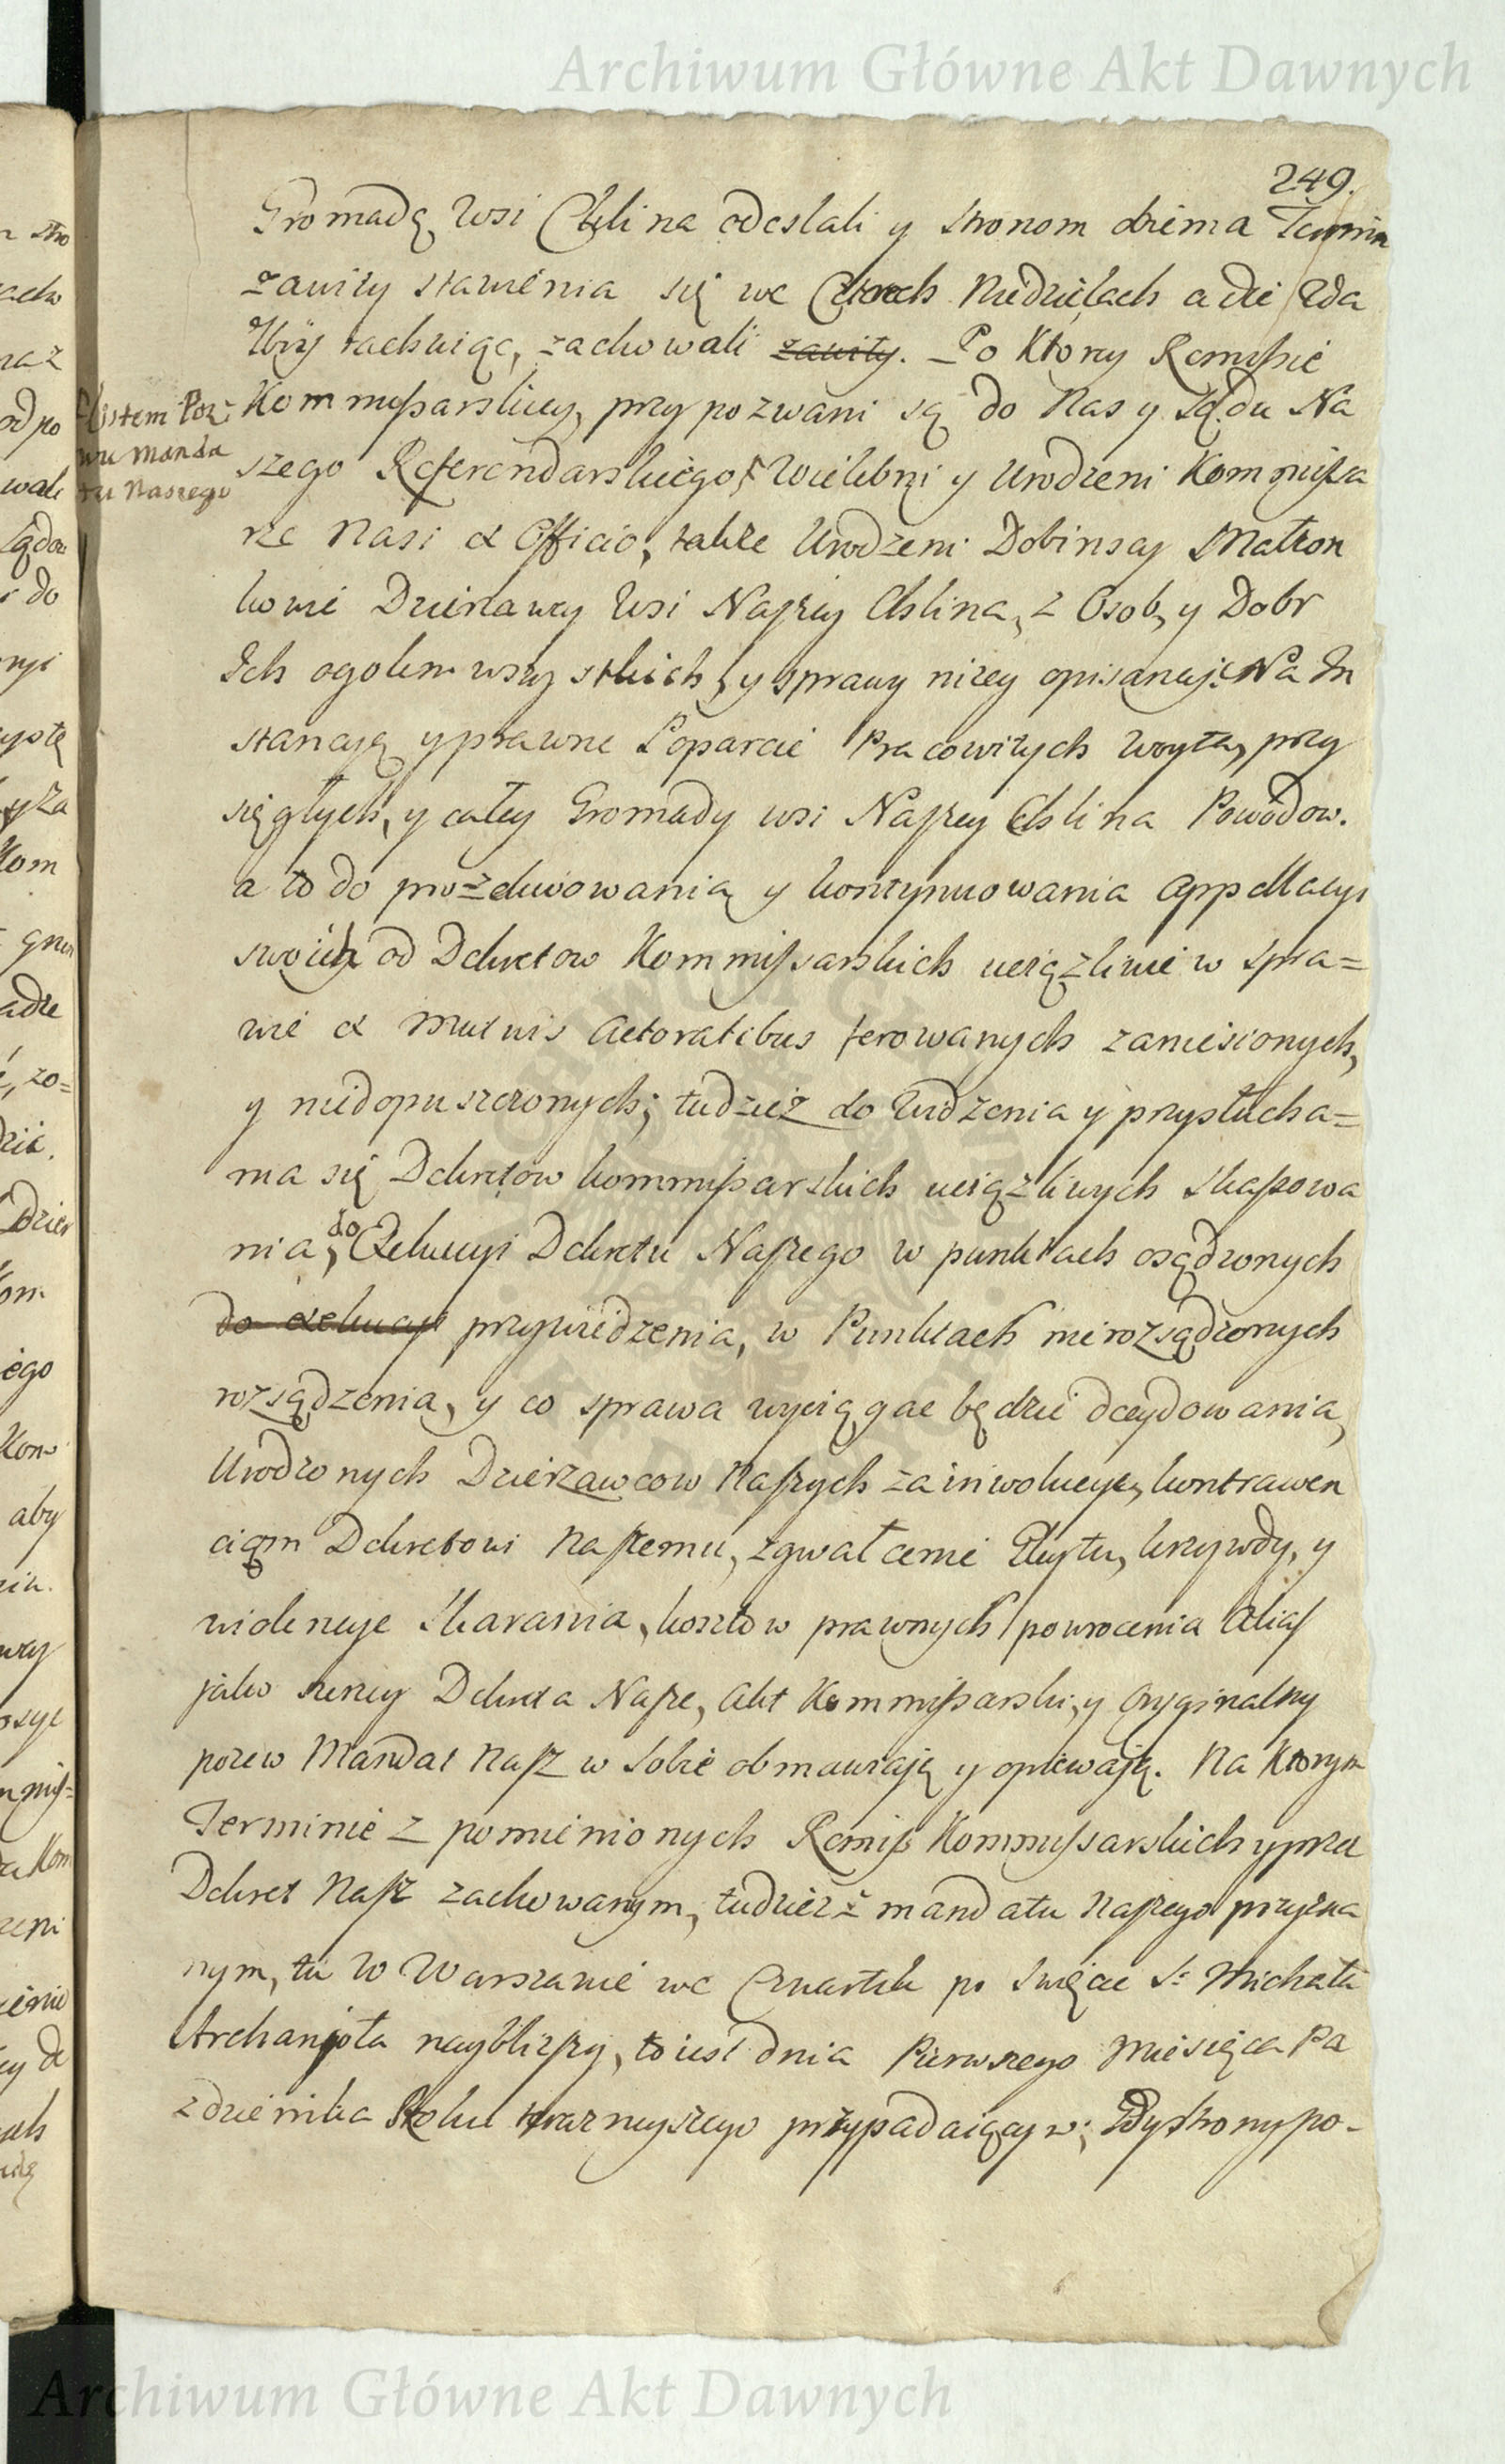 Archiwum Główne Akt Dawnych
249.
Gromadę wsi Chlina odesłali y stronom obiema Termin
zawity stawienia się we Czterech Niedzielach a die
rachuiąc, zachowali zawity. Po Ktorey Remissie
Kommissarskiey, przypozwani są do Nas y Sądu Na
Listem Poz-
wu manda
tu Naszego
szego Referendarskiego Wielebni y Urodzeni Kommissa
rze Nasi ex Officio, także Urodzeni Dobinscy Małżon
kowie Dzierzawcy Wsi Naszey Chlina, z Osob, y Dobr
Ich ogolem wszystkich, y sprawy niżey opisaney; Na In
stancyą y prawne Poparcie Pracowitych Woyta, przy
sięgłych, y całey Gromady wsi Naszey Chlina Powodow.
a to do prozekwowania y kontynuowania Appellacyi
swoich od Dekretow Kommissarskich uciążliwie w spra=
wie ex Mutuis Actoratibus ferowanych zaniesionych,
y niedopuszczonych; tudzież do widzenia y przysłucha=
nia się Dekretow kommissarskich uciążliwych skassowa
nia, do Exekucyi Dekretu Naszego w punktach osądzonych
do exekucyi przywiedzenia, w Punktach nierozsądzonych
rozsądzenia, y co sprawa wyciągac będzie decydowania,
Urodzonych Dzierzawcow Naszych za inwolucye, kontrawen
cyąm Dekretowi Naszemu, zgwałcenie Glejtu, krzywdy, y
wiolencye skarania, kosztow prawnych powrocenia alias
jako szerzey Dekreta Nasze, Akt Kommissarski, y Oryginalny
pozew Mandat Nasz w sobie obmawiają y opiewają. Na Ktorym
Terminie z pomienionych Remiss Kommissarskich y przez
Dekret Nasz zachowanym, tudzież z mandatu Naszego przyzna
nym, tu w Warszawie we Czwartek po Święcie S: Michała
Archanioła nayblizszy, to iest dnia Pierwszego Miesiąca Pa
zdziernika Roku teraznieyszego przypadaiącym; Gdy strony po-
Archiwum Główne Akt Dawnych